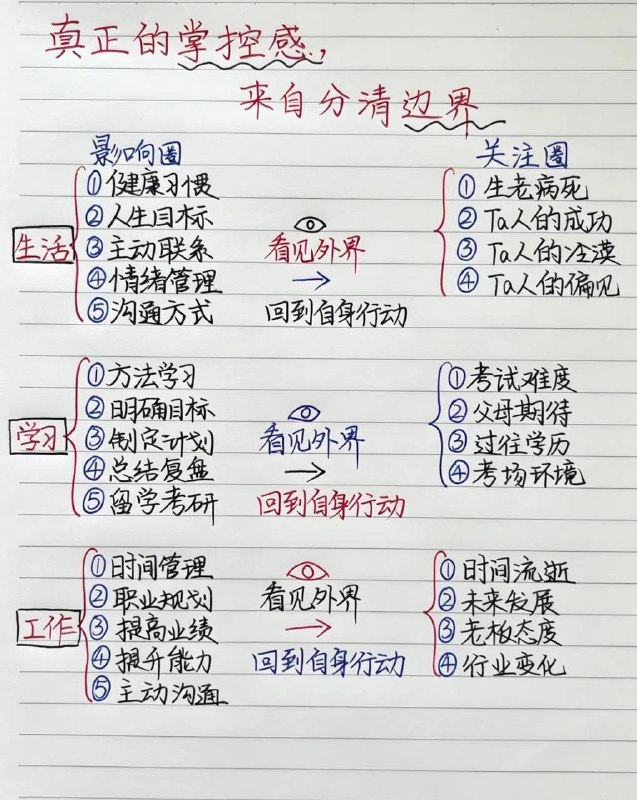 真正的掌控感,
来自分清边界
影响圈
关注圈
生活
①健康习惯
②人生目标
③主动联系
④情绪管理
⑤沟通方式
看见外界
→
回到自身行动
①生老病死
②Ta人的成功
③Ta人的冷漠
④Ta人的偏见
学习
①方法学习
②明确目标
③制定计划
④总结复盘
⑤留学考研
看见外界
→
回到自身行动
①考试难度
②父母期待
③过往学历
④考场环境
工作
①时间管理
②职业规划
③提高业绩
④提升能力
⑤主动沟通
看见外界
→
回到自身行动
①时间流逝
②未来发展
③老板态度
④行业变化